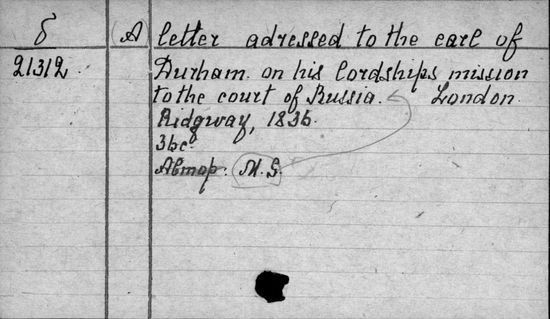 б (A) letter adressed to the earl of
21312 Durham on his lordships mission
to the court of Russia. London.
Ridgway, 1836.
36 с.
Автор: M. G.